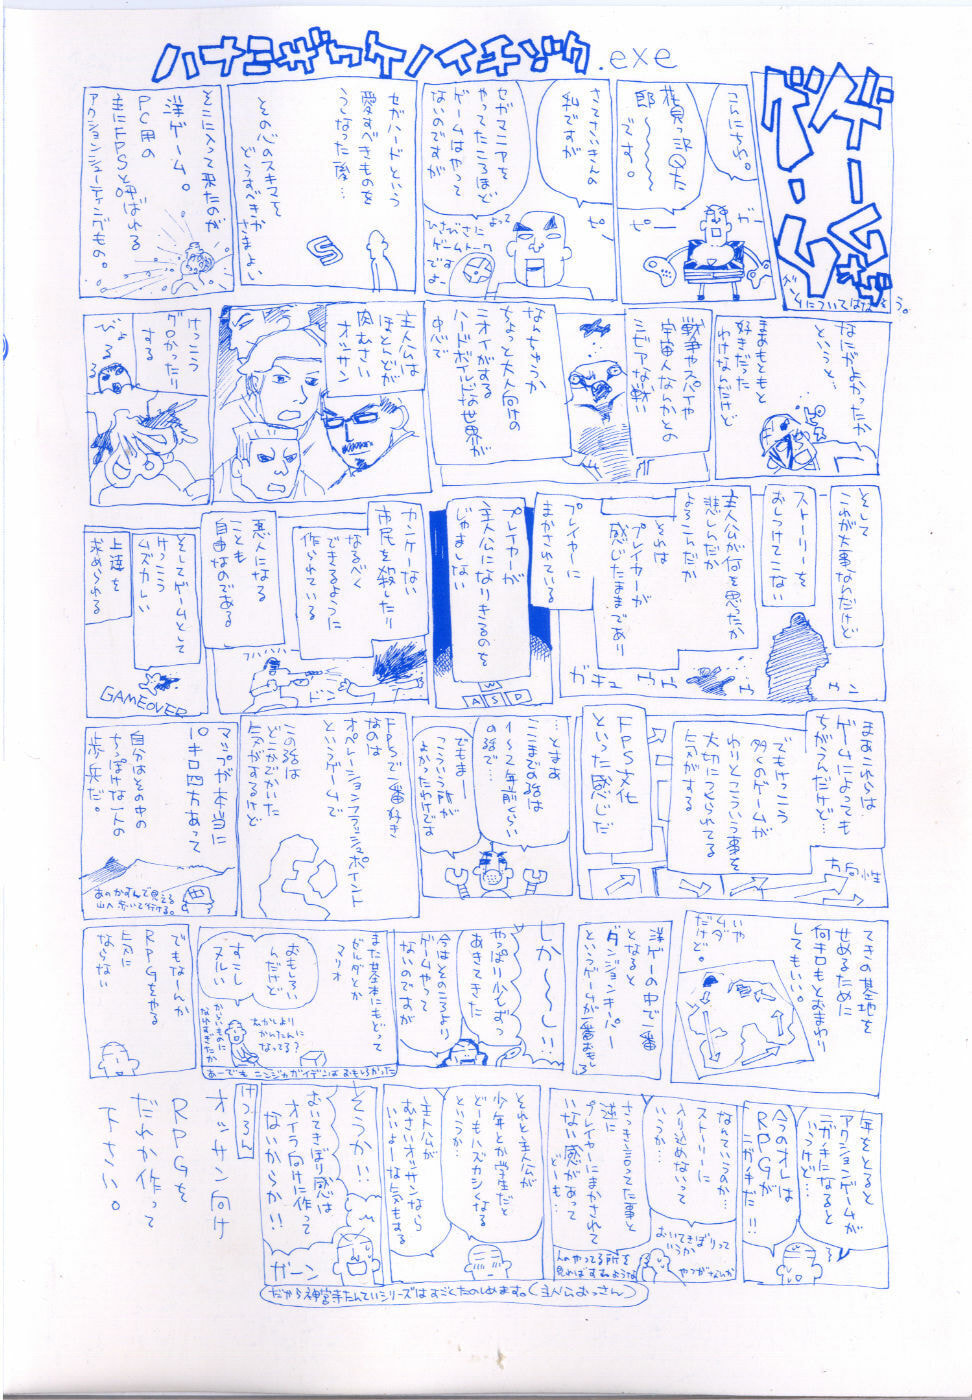 ハナミザワケノイチゾク.exe
ゲームザ・
ゲーム
こんにちわ。
花見沢Q太
郎〜〜〜〜
です。
ガー
ピー
さてさいきんの
私ですが
ピー
セガマニアを
やってたころほど
ゲームはやって
ないのですが
よって
ひさびさに
ゲームトーク
ですよ
セガハードという
愛すべきものを
うしなった後…
その心のスキマを
どうすべきか
さまよい
S
そこに入って来たのが
洋ゲーム。
PC用の
主にFPSと呼ばれる
アクションシューティングもの。
なにがよかったか
というと…
まあもともと
好きだった
わけなんだけど
戦争やスパイや
宇宙人なんかとの
シビアな戦い
なんちゅうか
ちょっと大人向けの
ニオイがする
ハードボイルドな世界が
中心で
主人公は
ほとんどが
肉むさい
オッサン
けっこう
グロかったり
する
そして
これが大事なんだけど
ストーリーを
おしつけてこない
主人公が何を思ったか
悲しんだか
よろこんだか
とかは
プレイヤーが
感じたままであり
ガキュ
ウゥゥ
ウン
プレイヤーに
まかされている
プレイヤーが
主人公になりきるのを
じゃましない
W
A S D
カンケーない
市民を殺したり
なるべく
できるように
作られている
悪人になる
ことも
自由なのである
ドン
そしてゲームとして
けっこう
ムズカしい
上達を
求められる
GAMEOVER
まあこれらは
ゲームによっても
ちがうんだけど…
でもけっこう
多くのゲームが
わりとこういう事を
大切につくられてる
気がする
方向性
FPS文化
といった感じだ
…とまあ
ここまでの話は
1〜2年前くらい
の話で…
でもまー
こういう所が
よかったわけです
FPSで一番好き
なのは
オペレーションフラッシュポイント
というゲームで
この話は
どこかでかいた
気がするけど
マップが本当に
10キロ四方あって
自分はその中の
ちっぽけな一人の
歩兵だ。
あのかすんで見える
山へ歩いて行ける。
てきの基地を
せめるために
何キロもとおまわり
してもいい。
いや
ムダ
だけど。
洋ゲーの中で一番
となると
ダンジョンキーパー
というゲームが一番おもしろ
しか〜〜し!!
やっぱり少しずつ
あきてきた
今はそのころより
ゲームやって
ないのですが
また基本にもどって
ゼルダとか
マリオ
おもしろい
んだけど
すこし
ヌルい
むかしより
かんたんに
なってる?
からいものに
なれすぎたか
あーでも ニンジャガイデンは おもしろかった
でもなーんか
RPGをやる
気に
ならない
年をとると
アクションゲームが
ニガキになると
いうけど…
今のオレは
RPGが
ニガキだ!!
なんていうのか…
ストーリーに
入り込めないって
いうか…
さっき言ってた事と
逆に
プレイヤーにまかされて
いない感があって
どーも…
おいてきぼりって
いうか
人のやってる所を
見ればすむような
やつがなんか
それと主人公が
少年とか学生だと
どーもハズカシくなる
というか…
主人公が
むさいオッサンなら
いいよーな気もする
そうか!!
おいてきぼり感は
オイラ向けに作って
ないからか!!
ガーン
だから神宮寺たんていシリーズはすごくたのしめます。(主人公おっさん)
けつろん
オッサン向け
RPGを
だれか作って
下さい。